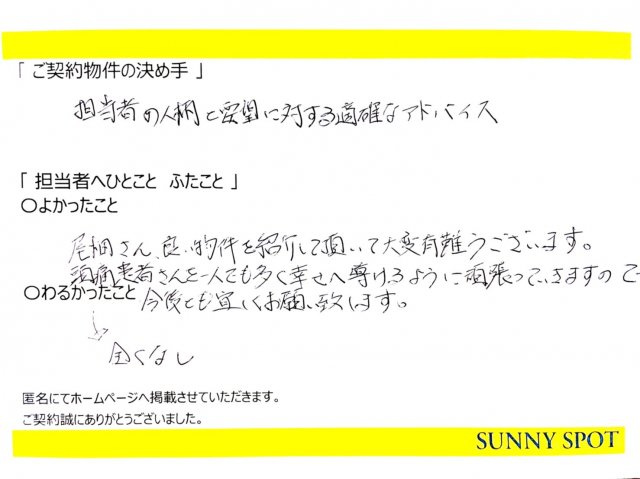 「 ご契約物件の決め手 」
担当者の人柄と要望に対する適確なアドバイス
「 担当者へひとこと ふたこと 」
〇よかったこと
尾棚さん、良い物件を紹介して頂いて大変有難うございます。
頭痛患者さんを一人でも多く幸せへ導けるように頑張っていきますので
〇わるかったこと 今後とも宜しくお願い致します。
全くなし
匿名にてホームページへ掲載させていただきます。
ご契約誠にありがとうございました。
SUNNY SPOT